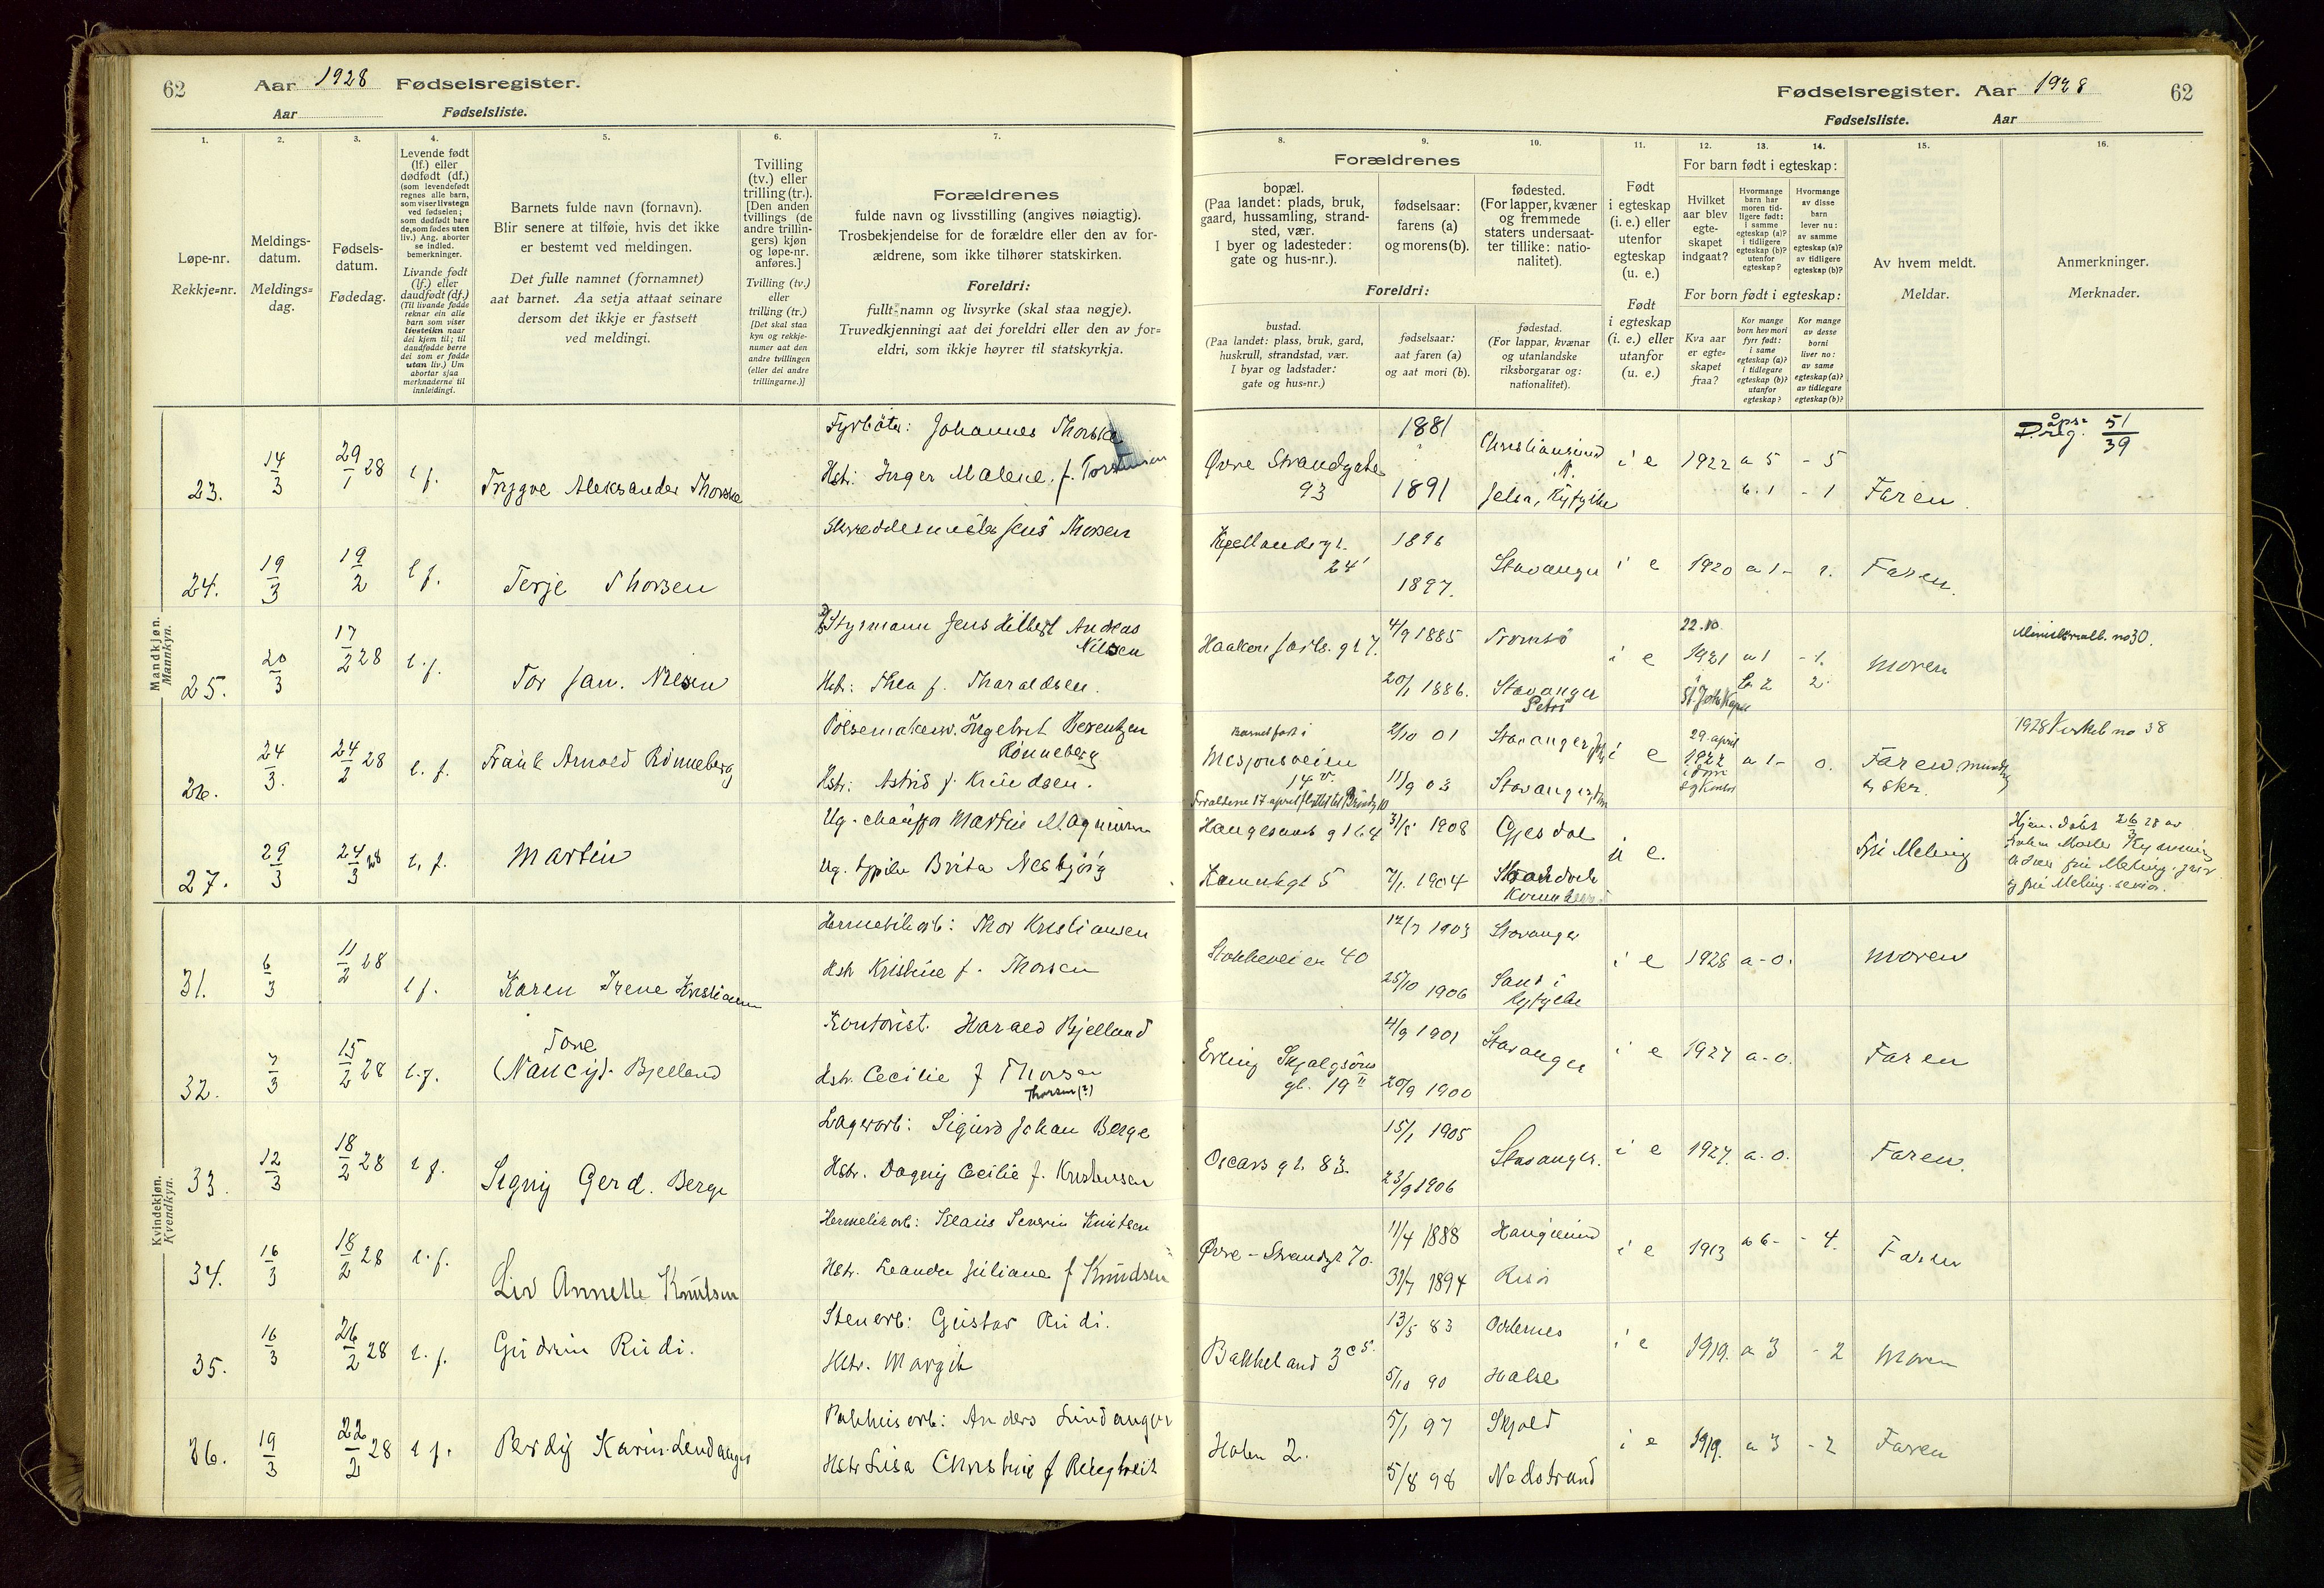 62
Aar 1928 Fødselsregister.
Aar
Fødselsliste.
1.
2.
3.
4.
5.
6.
7.
Løpe-nr.
Rekkje=nr.
Meldings-
datum.
Meldings=
dag.
Fødsels-
datum.
Fødedag.
Levende født
(lf.) eller
dødfødt (df.)
(som levendefødt
regnes alle barn,
som viser livstegn
ved fødselen;
som dødfødt bare
de, som fødes uten
liv.) Ang. aborter
se indled.
bemerkninger.
Livande født
(lf.) eller
daudfødt (df.)
(Til livande fødde
reknar ein alle
barn som viser
livsteikn naar
dei kjem til; til
daudfødde berre
dei som er fødde
utan liv.) Um
abortar sjaa
merknaderne til
innleidingi.
Barnets fulde navn (fornavn).
Blir senere at tilføie, hvis det ikke
er bestemt ved meldingen.
Det fulle namnet (fornamnet)
aat barnet. Aa setja attaat seinare
dersom det ikkje er fastsett
ved meldingi.
Tvilling
(tv.) eller
trilling (tr.).
[Den anden
tvillings (de
andre trillin-
gers) kjøn
og løpe-nr.
anføres.]
Tvilling (tv.)
eller
trilling (tr.)
[Det skal staa
kyn og rekkje-
numer aat den
andre tvillingen
(eller dei andre
trillingarne.)]
Forældrenes
fulde navn og livsstilling (angives nøiagtig).
Trosbekjendelse for de forældre eller den av for-
ældrene, som ikke tilhører statskirken.
Foreldri:
fullt namn og livsyrke (skal staa nøgje).
Truvedkjenningi aat dei foreldri eller den av for=
eldri, som ikkje høyrer til statskyrkja.
Mandkjøn.
Mannkyn.
23.
14/3
29/1 28
l f.
Trygve Aleksander Thorske
Fyrbøter: Johannes Thorske
Hstr: Inger Malene, f.
24.
19/3
19/2
l f.
Terje Thorsen
Skreddermester Jens Thorsen
25.
20/3
17/2 28
l. f.
Tor Jan. Nilsen
Styrmann Jens Hilbert Andreas
Nilsen
Hstr: Thea f. Tharaldsen.
26.
24/3.
24/2 28
l. f.
Frank Arnold Rønneberg
Pølsemaker Ingebret Berentzen
Rønneberg
Hstr: Astrid f. Knudsen.
27.
29/3
24/3 28
l. f.
Martin
Ug. chauffør Martin Magnussen
Ug. Brita Nesbjørg
Kvindekjøn.
Kvendkyn.
31.
6/3
11/2 28
l f.
Karen Irene Kristiansen
Hermetikarb: Thor Kristiansen
Hstr Kristine f. Thorsen
32.
7/3
15/2 28
l. f.
Tove
(Nancy). Bjelland
Kontorist. Harald Bjelland
Hstr. Cecilie f Thorsen
Thorsen (?)
33.
12/3
18/2 28
l f.
Signy Gerd. Berge
Lagerarb: Sigurd Johan Berge
Hstr. Dagny Cecilie f. Kristensen
34.
16/3
18/2 28
l. f.
Liv Annette Knutsen
Hermetikarb: Klaus Severin Knutsen
Hstr. Leander Juliane f Knudsen
35.
16/3
26/2 28
l. f.
Gudrun Rudi.
Stenarb: Gustav Rudi.
Hstr. Margit
36.
19/3
22/2 28
l f.
Perdy Karin Lindanger
Pakhusarb: Anders Lindanger
Hstr Lisa Christine f
Fødselsregister. Aar 1928
62
Fødselsliste.
Aar
8.
9.
10.
11.
12.
13.
14.
15.
16.
Forældrenes
bopæl.
(Paa landet: plads, bruk,
gaard, hussamling, strand-
sted, vær.
I byer og ladesteder:
gate og hus-nr.).
fødselsaar:
farens (a)
og morens (b).
fødested.
(For lapper, kvæner
og fremmede
staters undersaat-
ter tillike: natio-
nalitet).
Foreldri:
bustad.
(Paa landet: plass, bruk, gard,
huskrull, strandstad, vær.
I byar og ladstader:
gate og hus-nr.)
fødselsaar:
aat faren (a)
og aat mori (b).
fødestad.
(For lappar, kvænar
og utanlandske
riksborgarar og:
nationalitet).
Født
i egteskap
(i. e.) eller
utenfor
egteskap
(u. e.)
Født
i egteskap
(i. e.) eller
utanfor
(u. e.)
For barn født i egteskap:
Hvilket
aar blev
egte-
skapet
indgaat?
Hvormange
barn har
moren tid-
ligere født:
i samme
egteskap (a)?
i tidligere
egteskap (b)?
utenfor
egteskap?
Hvormange
av disse
barn
lever nu:
av samme
egteskap (a)?
av tidligere
egteskap (b)?
For born født i egteskap:
Kva aar
er egte-
skapet
fraa?
Kor mange
born hev mori
fyrr født:
i same
egteskap (a)?
i tidlegare
egteskap (b)?
utanfor
egteskap?
Kor mange
av desse
borni
liver no:
av same
egteskap (a)?
av tidlegare
egteskap (b)?
Av hvem meldt.
Meldar.
Anmerkninger.
Merknader.
Øvre Strandgate
93
1881
1891
Christiansund
N.
Jelsa, Ryfylke
i e
1922
a 5 - 5
b. 1 - 1
Faren.
Dåps-
reg. 51/39
Kjellandsgt.
24
1896
1897.
Stavanger
i e
1920
a 1 - 1.
Faren.
Haakon Jarls. gt 7.
4/9 1885
20/1 1886.
Tromsø
Stavanger
Petri
i e
22.10
1921
a 1 - 1.
b. 2 2.
Moren
no 30.
Barnet født i
Misjonsveien
14 v.
Forældrene 17 april flyttet til
2/10 01
11/9 03
Stavanger,
Stavanger,
i e
29. april
1922
a 1 - 0.
Faren, mundtl.
og skr.
1928 Kirkeb no 38
Haugesunds gt 64
31/5 1908
Gjesdal
u e.
Frk Meling
Hjem. døbt 26/3 28 av
Kamnhgt 5
7/1. 1904
Strandvik
Stokkeveien 40
12/7 1903
25/10 1906
Stavanger
Sand i
Ryfylke
i e
1928
a - 0.
Moren
Erling Skjalgsøns
gt. 19 II
4/9 1901
20/9 1900
Stavanger
i e
1927
a - 0.
Faren
Oscars gt. 83.
15/1 1905
23/9 1906
Stavanger.
i e
1927.
a. 0.
Faren.
Øvre - Strandgt 70.
11/4 1888
31/7 1894
Haugesund
Risør
i e
1913
a 6 - - 4.
Faren
Bakkeland 3 c 5.
13/5 83
5/10 90
Oddernes
Halse
i e
1919.
a 3 - 2
Moren
Holen 2.
5/1 97
5/8 98
Skjold
Nedstrand
i e
1919.
a 3 - 2
Faren